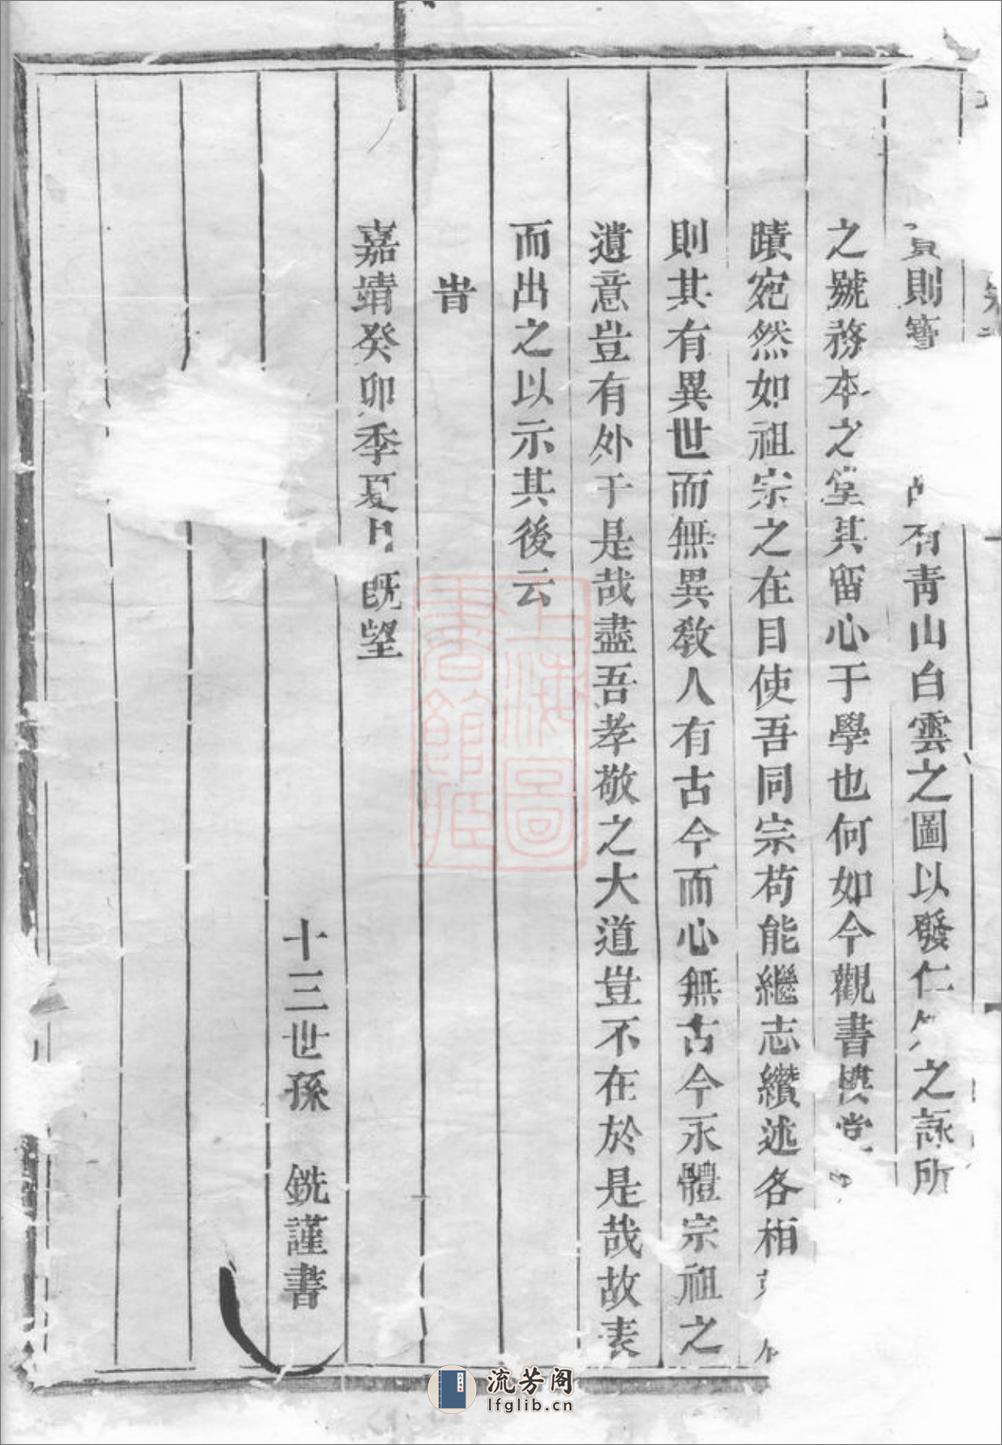 則
有青山白雲之圖以發仁之詠所
之號務本之堂其留心于學也何如今觀書樓堂
蹟宛然如祖宗之在目使吾同宗苟能繼志纘述各相
則其有異世而無異教人有古今而心無古今永體宗祖之
遺意豈有外于是哉盡吾孝敬之大道豈不在於是哉故表
而出之以示其後云
旹
嘉靖癸卯季夏月既望
十三世孫 銑謹書
上海圖書館藏
流芳阁
lfglib.cn